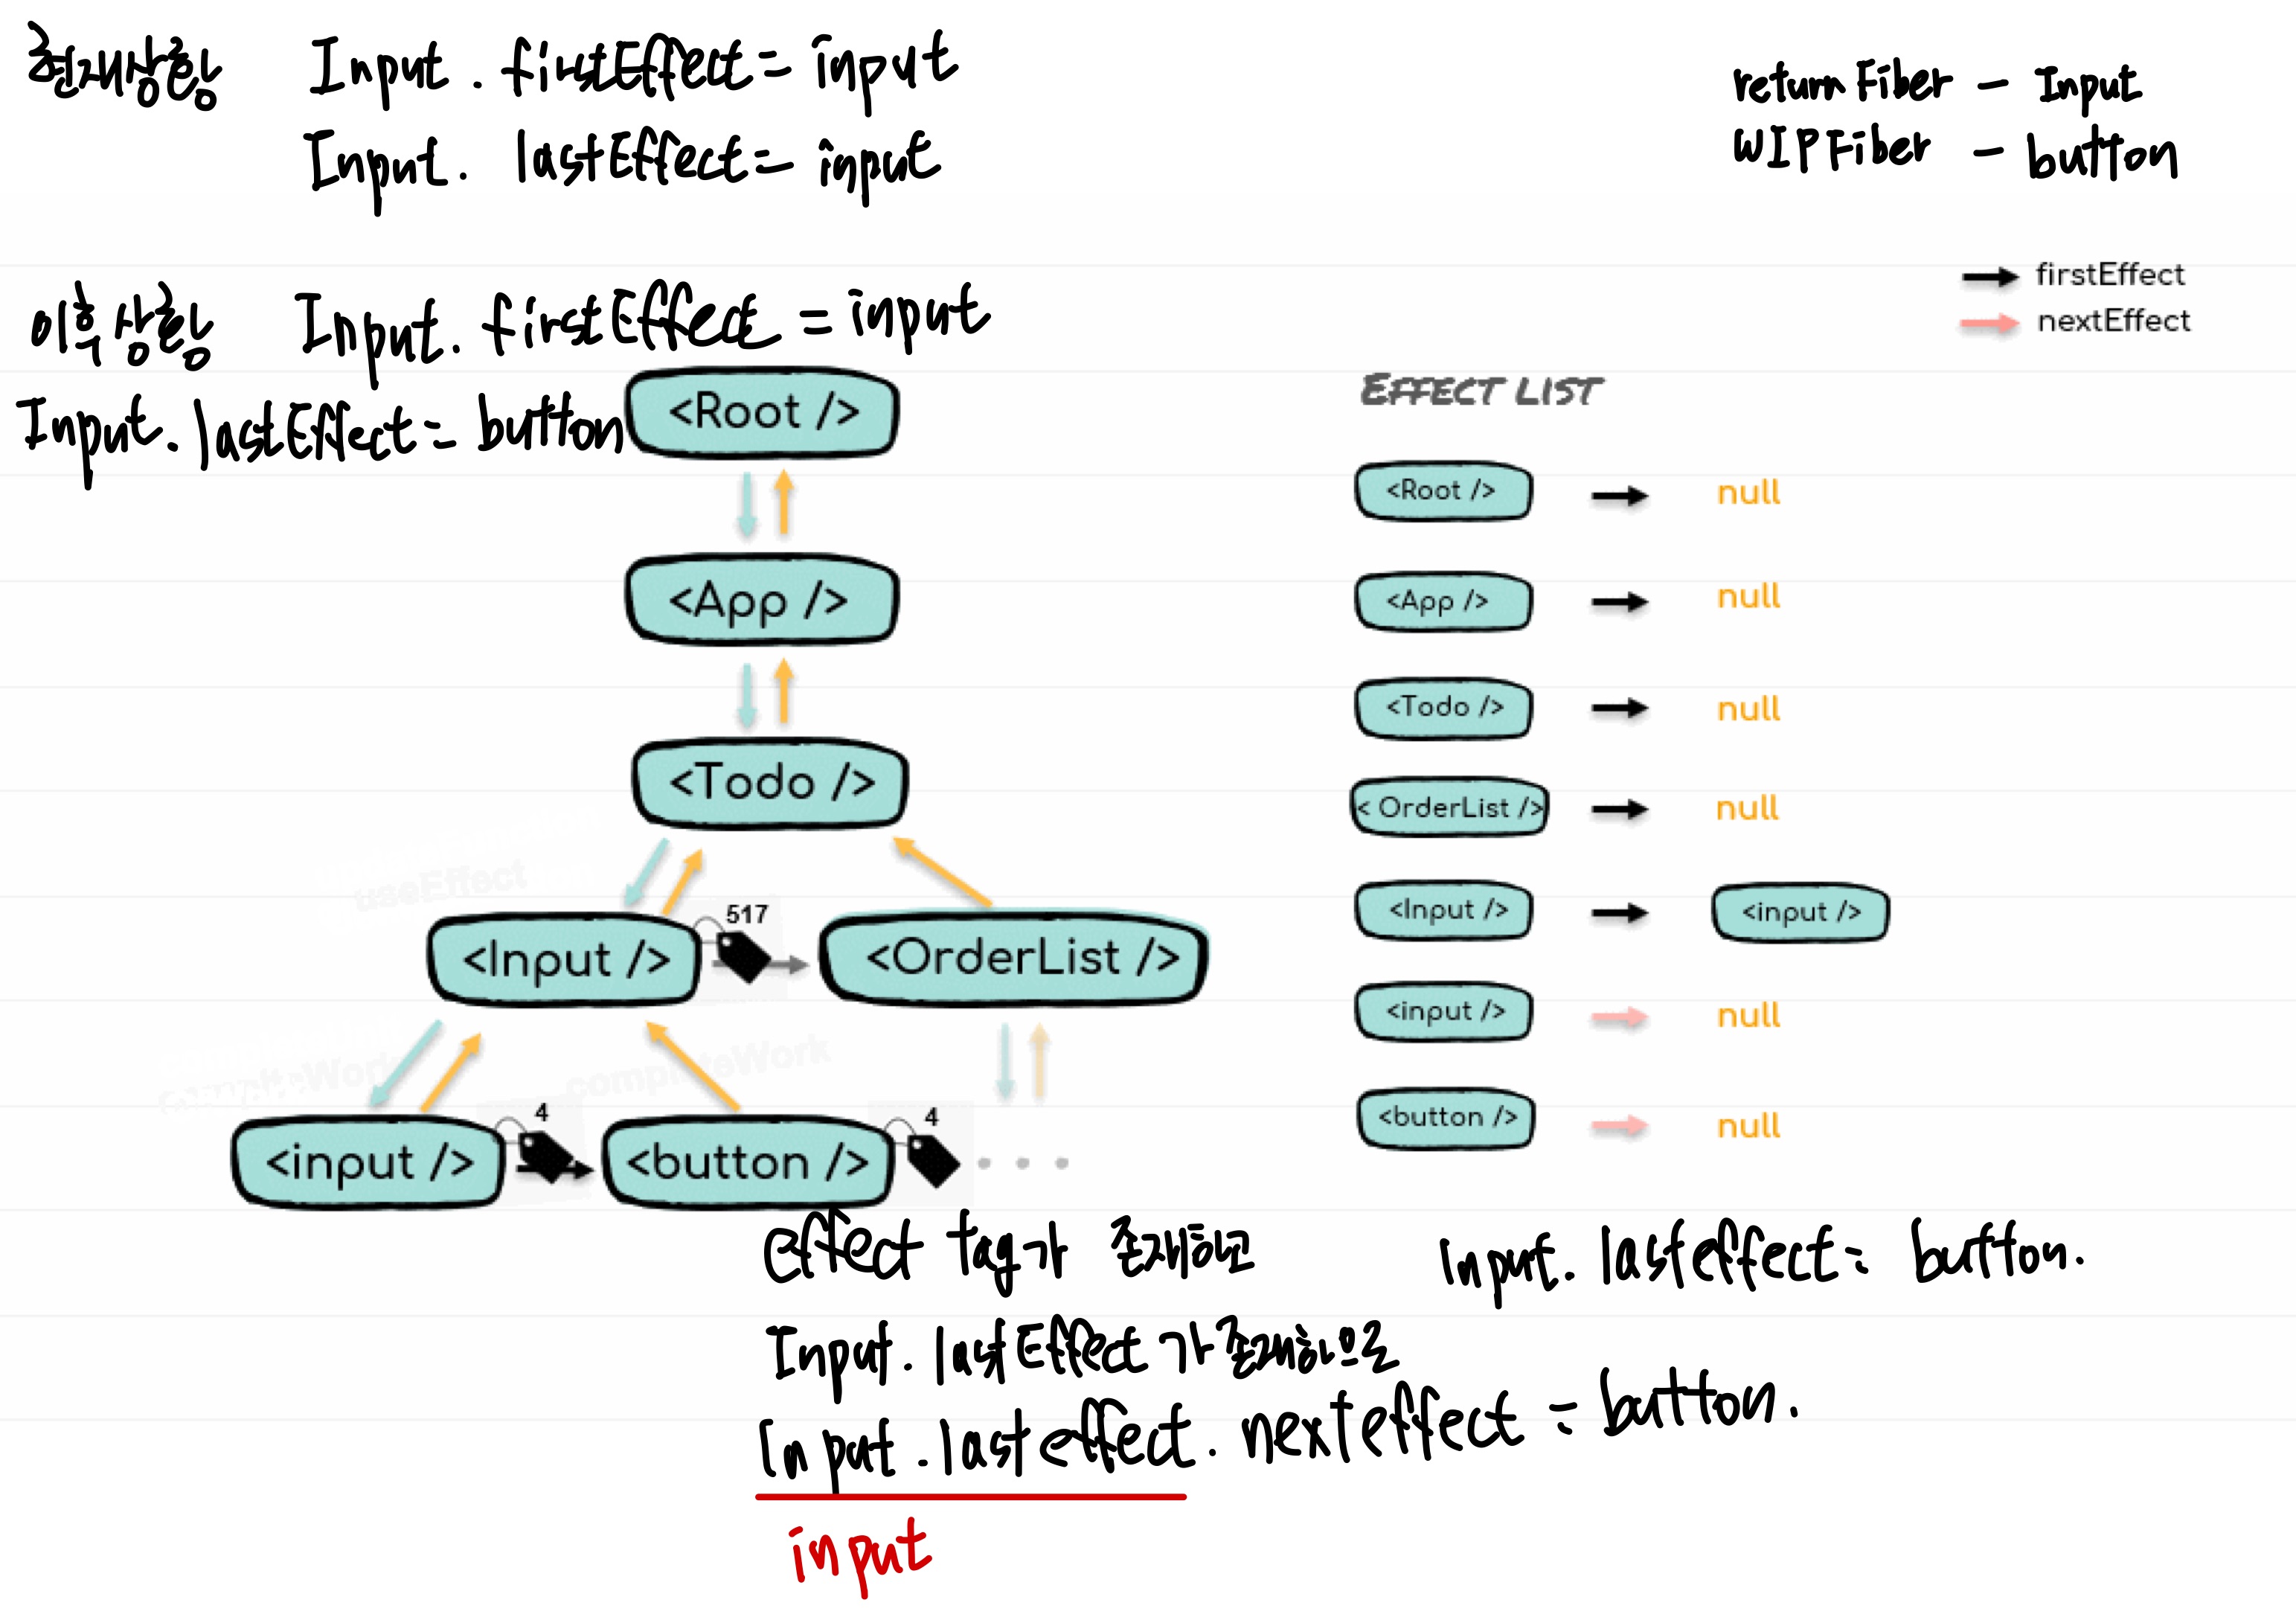 현재상황 Input. firstEffect = input
Input. lastEffect = input
returnFiber - Input
WIPFiber - button
이후상황 Input. firstEffect = input
Input. lastEffect = button
firstEffect
nextEffect
EFFECT LIST
<Root />
<App />
<Todo />
useEffect
<Input />
517
<OrderList />
completeWork
completeWork
<input />
4
<button />
4
...
<Root /> null
<App /> null
<Todo /> null
< OrderList /> null
<Input /> <input />
<input /> null
<button /> null
effect tag가 존재하고
Input. lastEffect가 존재하므로
Input. lasteffect. nexteffect = button.
input
Input. lasteffect = button.